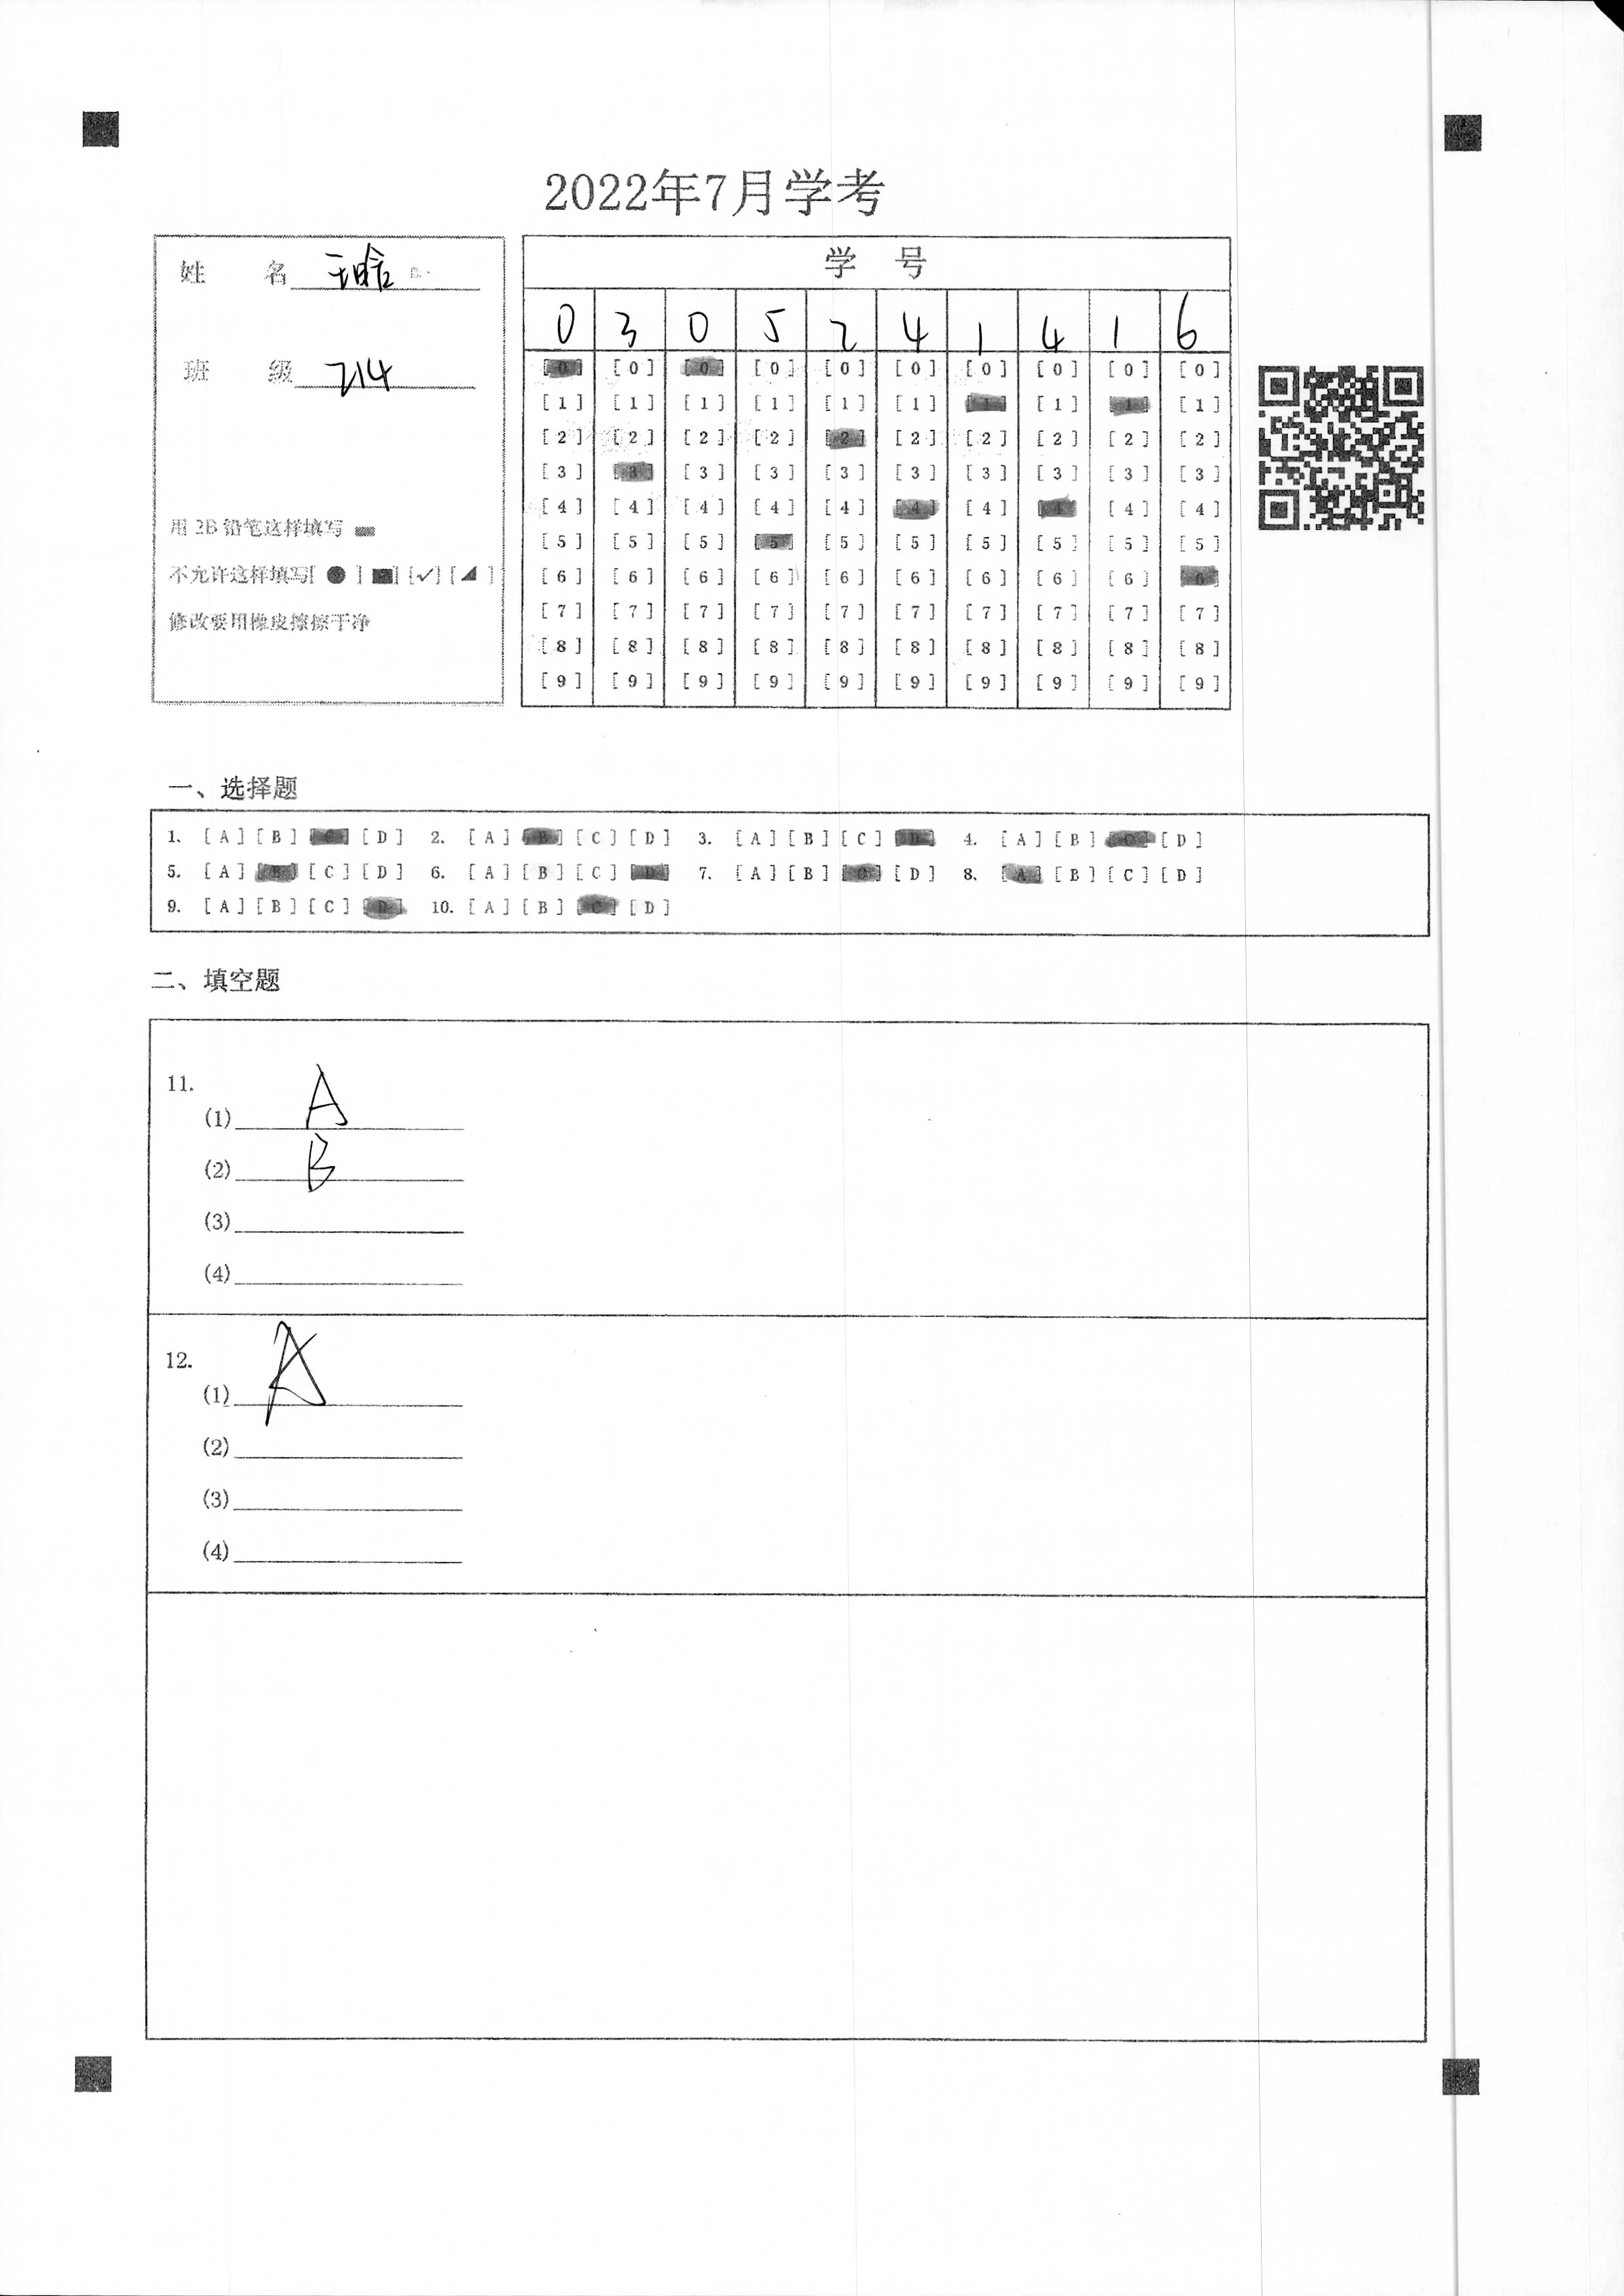 2022年7月学考
姓 名
班 级 214
用2B铅笔这样填写
不允许这样填写[ ● ] ■] [✓] [◢ ]
修改要用橡皮擦擦干净
学 号
0 3 0 5 2 4 1 4 1 6
[0] [0] [0] [0] [0] [0] [0] [0] [0] [0]
[1] [1] [1] [1] [1] [1] [1] [1] [1] [1]
[2] [2] [2] [2] [2] [2] [2] [2] [2] [2]
[3] [3] [3] [3] [3] [3] [3] [3] [3] [3]
[4] [4] [4] [4] [4] [4] [4] [4] [4] [4]
[5] [5] [5] [5] [5] [5] [5] [5] [5] [5]
[6] [6] [6] [6] [6] [6] [6] [6] [6] [6]
[7] [7] [7] [7] [7] [7] [7] [7] [7] [7]
[8] [8] [8] [8] [8] [8] [8] [8] [8] [8]
[9] [9] [9] [9] [9] [9] [9] [9] [9] [9]
一、选择题
1. [A] [B] [C] [D] 2. [A] [B] [C] [D] 3. [A] [B] [C] [D] 4. [A] [B] [C] [D]
5. [A] [B] [C] [D] 6. [A] [B] [C] [D] 7. [A] [B] [C] [D] 8. [A] [B] [C] [D]
9. [A] [B] [C] [D] 10. [A] [B] [C] [D]
二、填空题
11.
(1) A
(2) B
(3)
(4)
12.
(1) A
(2)
(3)
(4)